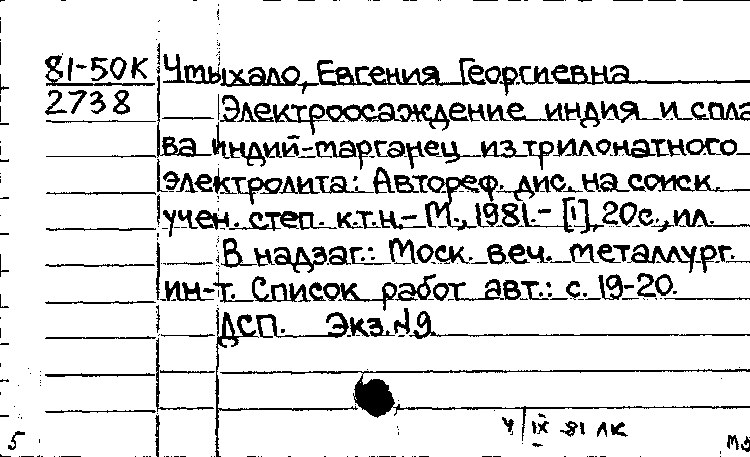 81-50К Чтыхало, Евгения Георгиевна
2738 Электроосаждение индия и спла
ва индий-марганец из трилонатного
электролита: Автореф. дис. на соиск.
учен. степ. к.т.н.- М., 1981.- [1], 20с., ил.
В надзаг.: Моск. веч. металлург.
ин-т. Список работ авт.: с. 19-20.
ДСП. Экз. № 9.
IX -81 ЛК
5